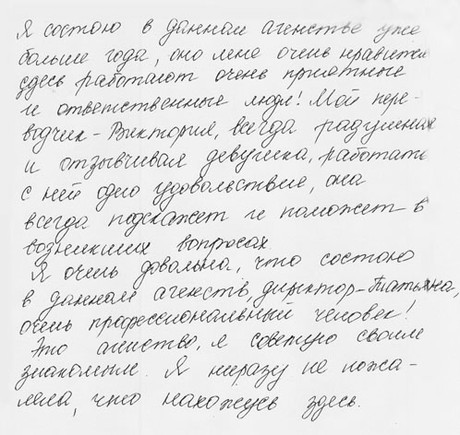 Я состою в данном агенстве уже
больше года, оно мне очень нравится
здесь работают очень приятные
и ответственные люди! Мой пере-
водчик - Виктория, всегда радушная
и отзывчивая девушка, работать
с ней одно удовольствие, она
всегда подскажет и поможет в
возникших вопросах
Я очень довольна, что состою
в данном агенств, директор - Татьяна,
очень профессиональный человек!
Это агнство, я советую своим
знакомым. Я ниразу не пожа-
лела, что нахожусь здесь.